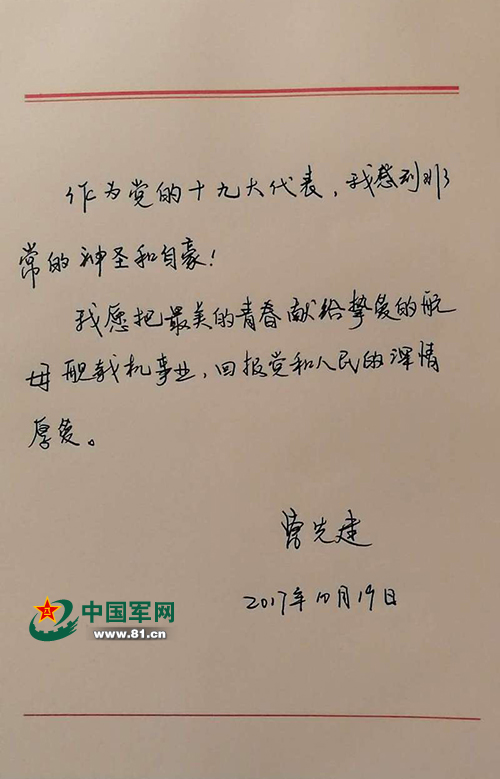 作为党的十九大代表，我感到非
常的神圣和自豪！
我愿把最美的青春献给挚爱的航
母舰载机事业，回报党和人民的深情
厚爱。
曹先建
2017年10月19日
中国军网
www.81.cn